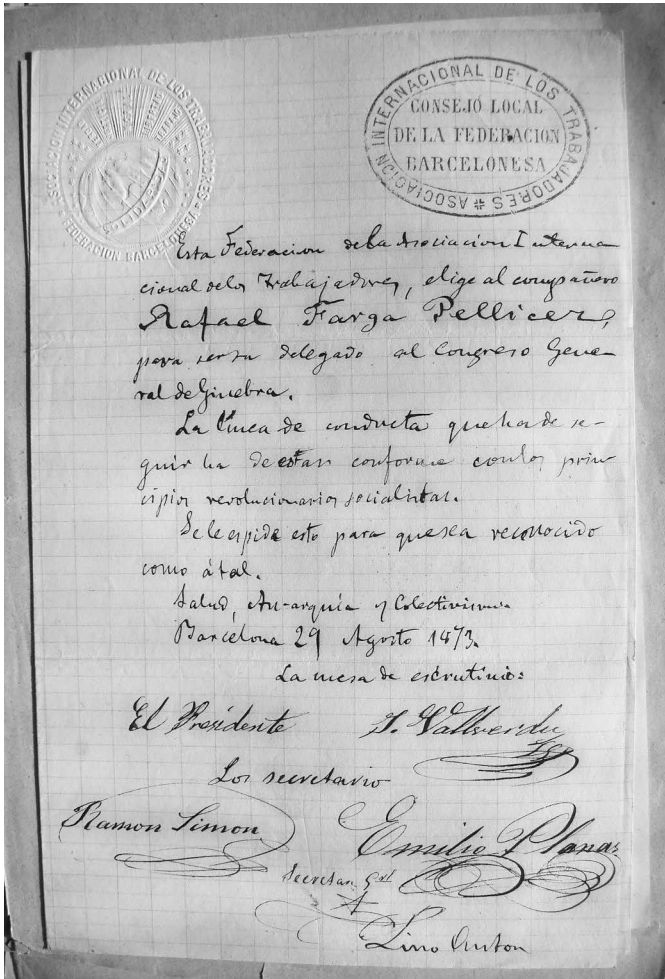 ASOCIACION INTERNACIONAL DE LOS TRABAJADORES
FEDERACION BARCELONESA
ASOCIACION INTERNACIONAL DE LOS TRABAJADORES
CONSEJO LOCAL
DE LA FEDERACION
BARCELONESA
Esta Federacion de la Asociacion Interna
cional de los Trabajadores, elige al compañero
Rafael Farga Pellicer,
para ser su delegado al Congreso Gene-
ral de Ginebra.
La linea de conducta que ha de se-
guir ha de estar conforme con los prin-
cipios revolucionarios socialistas.
Se le espide esto para que sea reconocido
como á tal.
Salud, An-arquía y Colectivismo.
Barcelona 29 Agosto 1873.
La mesa de escrutinio:
El Presidente J. Vallverdu
Los secretario
Ramon Simon
Emilio Planas
Secretar. Gral
Lino Anton